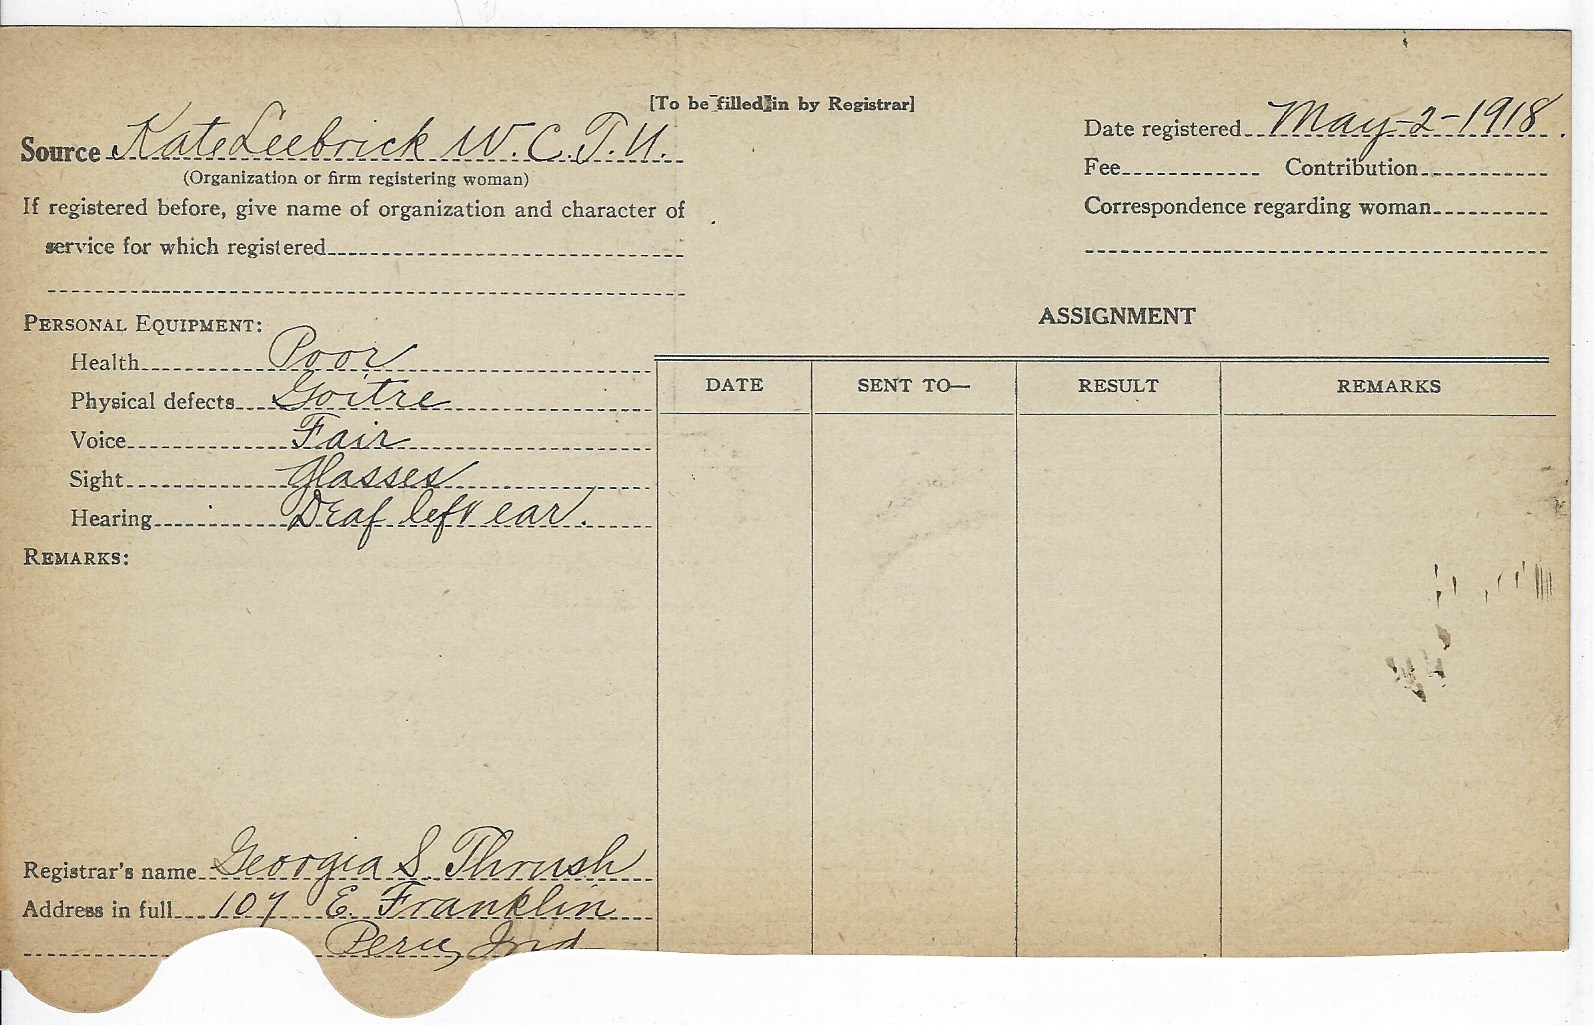 [To be filled in by Registrar]
Source Kate Leebrick W.C.T.U.
(Organization or firm registering woman)
If registered before, give name of organization and character of
service for which registered
Date registered May-2-1918.
Fee Contribution
Correspondence regarding woman
PERSONAL EQUIPMENT:
Health Poor
Physical defects Goitre
Voice Fair
Sight Glasses
Hearing Deaf left ear.
REMARKS:
ASSIGNMENT
DATE SENT TO— RESULT REMARKS
Registrar's name Georgia S. Thrush
Address in full 107 E. Franklin
Peru, Ind